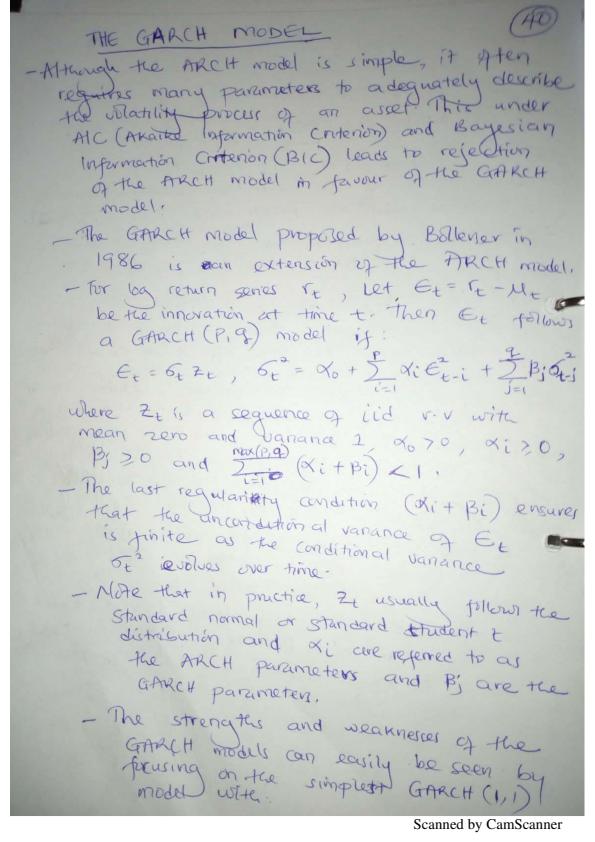 40
THE GARCH MODEL
- Although the ARCH model is simple, it often
requires many parameters to adequately describe
the volatility process of an asset. This under
AIC (Akaike Information Criterion) and Bayesian
Information Criterion (BIC) leads to rejection
of the ARCH model in favour of the GARCH
model.
- The GARCH model proposed by Bollener in
1986 is an extension of the ARCH model.
- For log return series r_t, Let ε_t = r_t - μ_t
be the innovation at time t. Then ε_t follows
a GARCH (P,q) model if:
ε_t = σ_t z_t , σ_t² = α₀ + Σ_{i=1}^{p} α_i ε²_{t-i} + Σ_{j=1}^{q} β_j σ²_{t-j}
where z_t is a sequence of iid r.v with
mean zero and variance 1, α₀ > 0, α_i ≥ 0,
β_j ≥ 0 and Σ_{i=1}^{max(p,q)} (α_i + β_i) < 1.
- The last regularity condition (α_i + β_i) ensures
that the unconditional variance of ε_t
is finite as the conditional variance
σ_t² evolves over time.
- Note that in practice, z_t usually follows the
standard normal or standard student t
distribution and α_i are referred to as
the ARCH parameters and β_j are the
GARCH parameters.
- The strengths and weaknesses of the
GARCH models can easily be seen by
focusing on the simplest GARCH (1,1)
model with.
Scanned by CamScanner